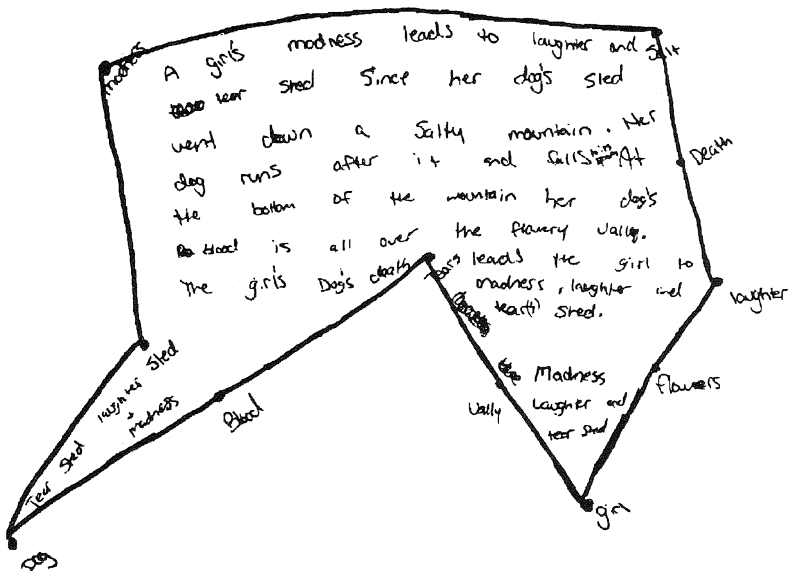 madness
A girl's madness leads to laughter and
Salt
tear shed Since her dog's sled
went down a Salty mountain. Her
dog runs after it and falls At
Death
the bottom of the mountain her dog's
blood is all over the flowery vally.
The girl's Dog's death leads the girl to
Tears
madness, laughter and
tear(s) shed.
laughter
Sled
Madness
laughter and
tear shed
flowers
Vally
Blood
Tear shed laughter + madness
girl
Dog